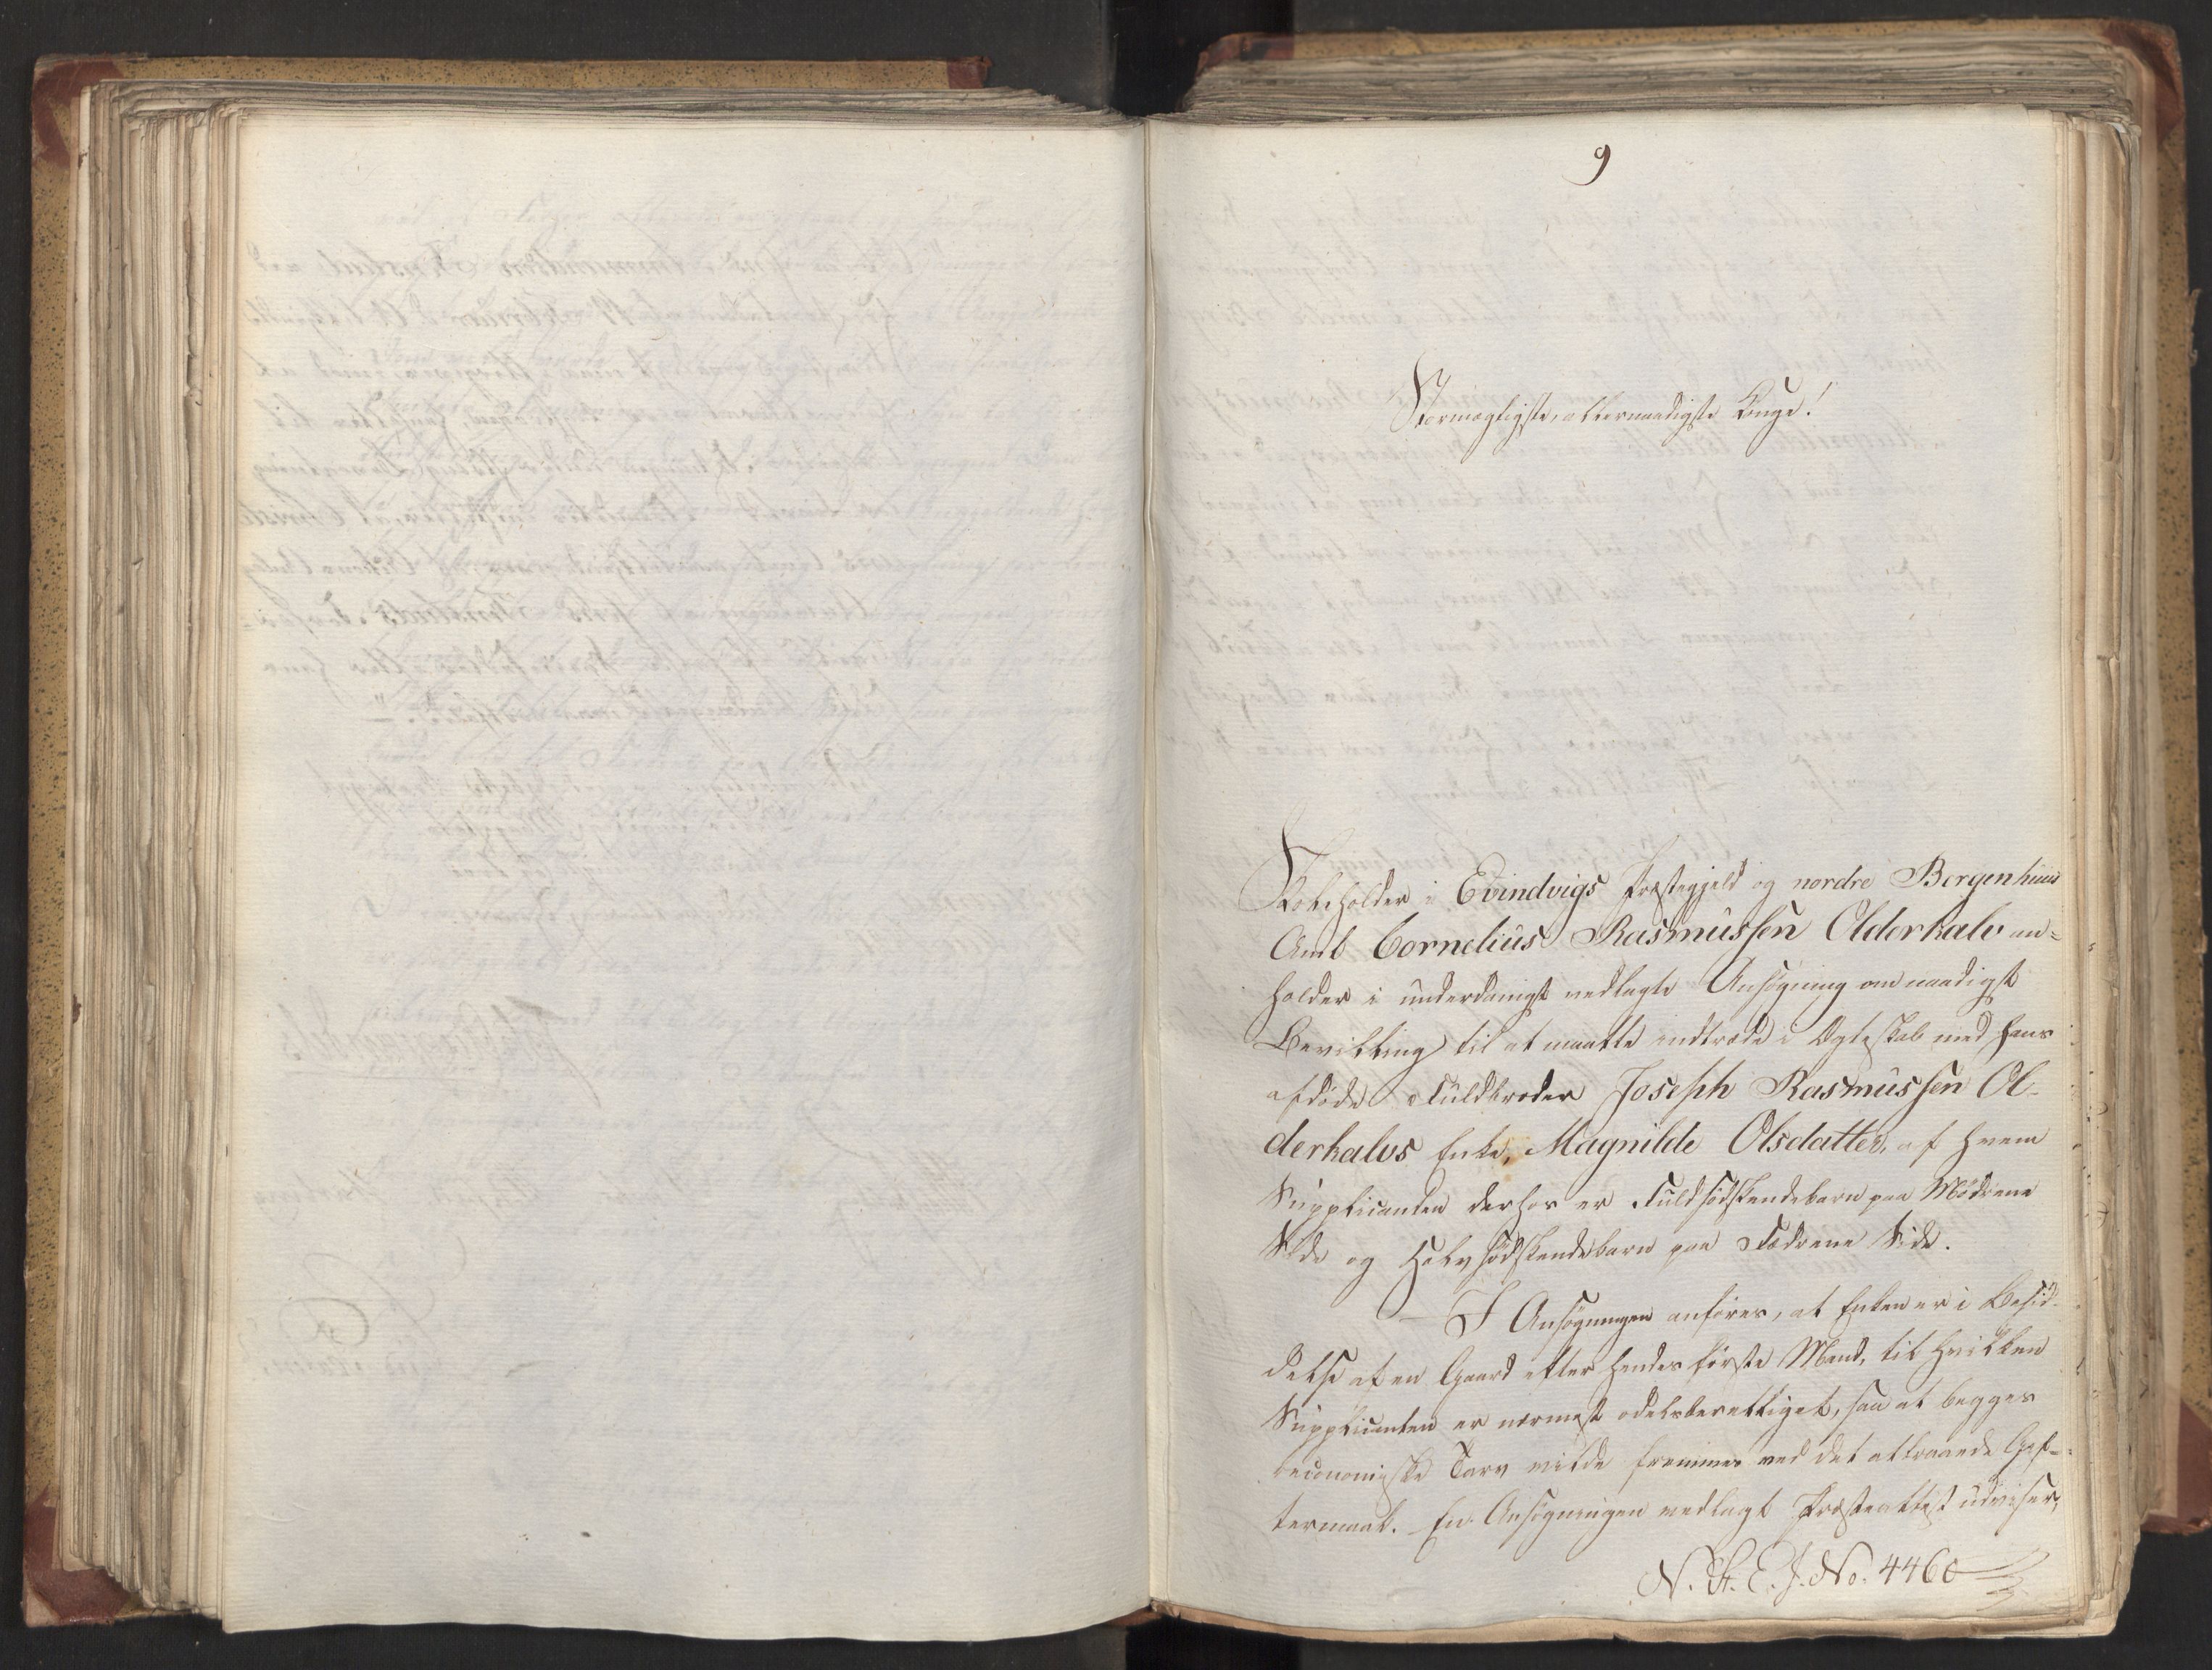 9
Stormægtigste, allernaadigste Konge!
Skoleholder i Evindvigs Præstegjeld og nordre Bergenhuus
Amt Cornelius Rasmussen Olderkalv an-
holder i underdanigst vedlagte Ansøgning om naadigst
Bevilling til at maatte indtræde i Ægteskab med hans
afdøde Fuldbroder Joseph Rasmussen Ol-
derkalvs Enke, Magnilde Olsdatter, af hvem
Supplicanten derhos er Fuldsødskendebarn paa Mødrene
Side og Halvsødskendebarn paa Fædrene Side.
I Ansøgningen anføres, at Enken er i Besid-
delse af en Gaard efter hendes første Mand, til hvilken
Supplicanten er nærmest odelsberettiget, saa at begges
oeconomiske Tarv vilde fremmes ved det attraaede Gif-
termaal. En Ansøgningen vedlagt Præsteattest udviser,
N. St. E. J. No. 4460